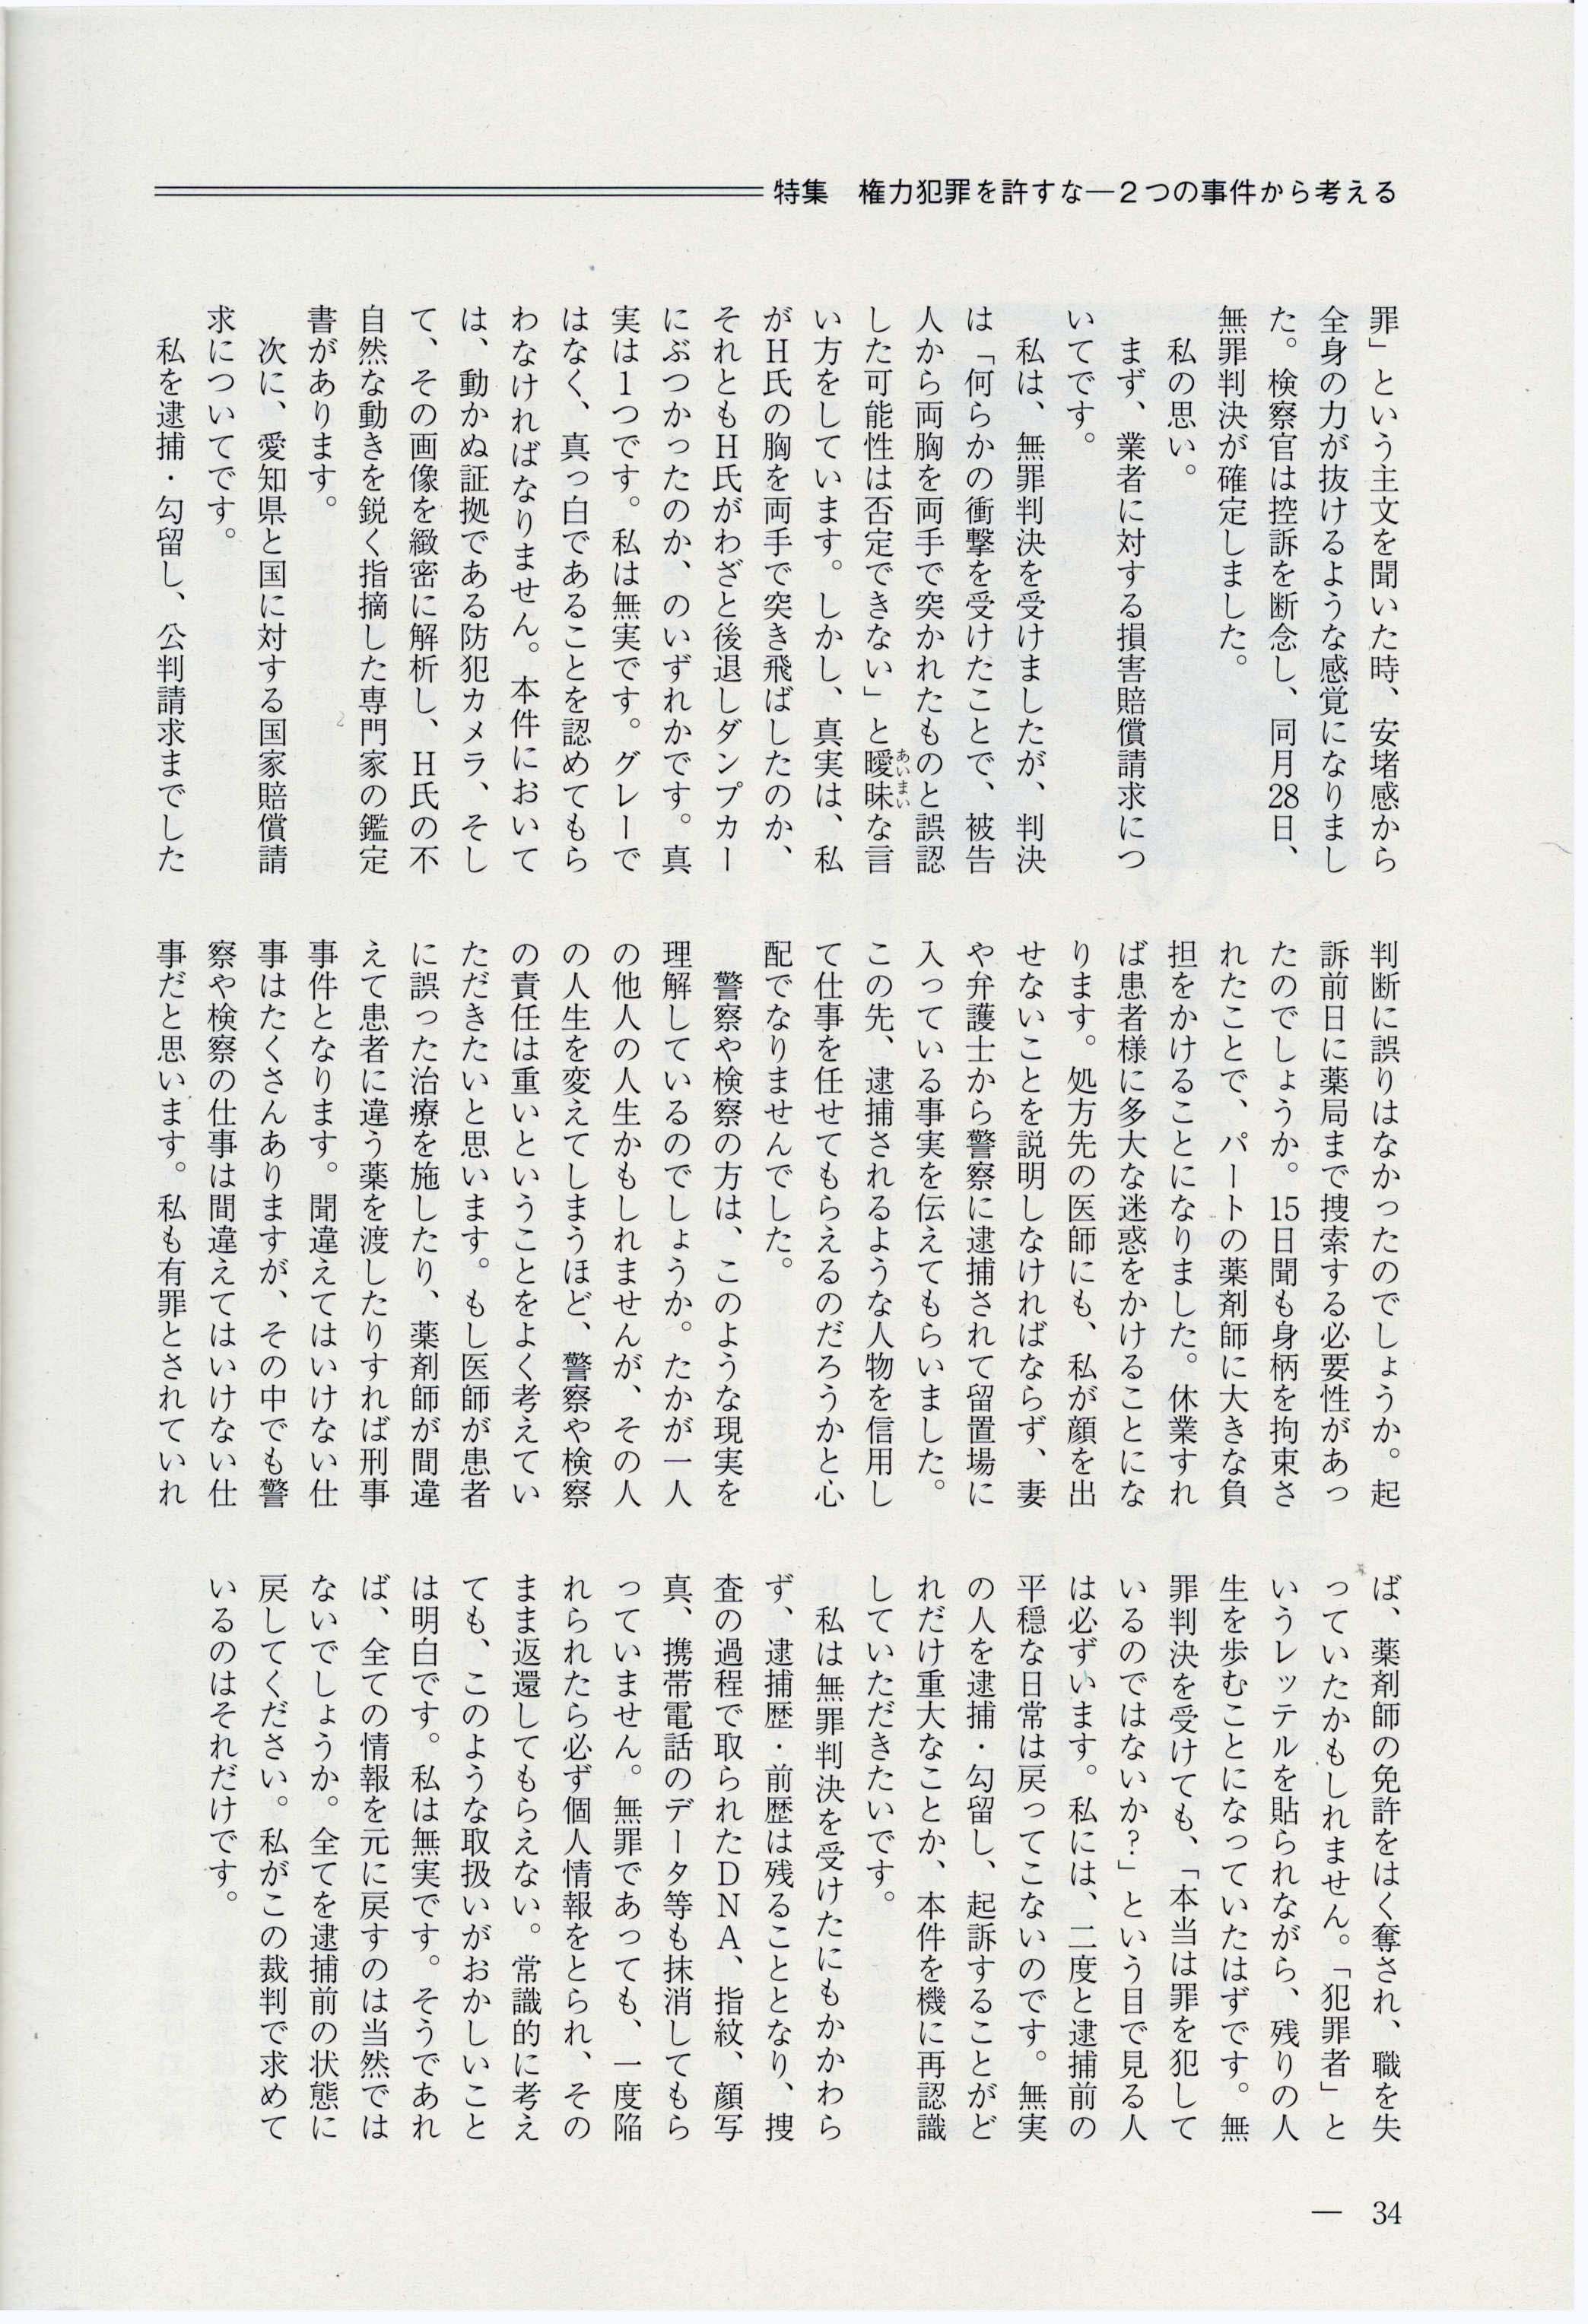 特集　権力犯罪を許すな―2つの事件から考える
罪」という主文を聞いた時、安堵感から
全身の力が抜けるような感覚になりまし
た。検察官は控訴を断念し、同月28日、
無罪判決が確定しました。
私の思い。
まず、業者に対する損害賠償請求につ
いてです。
私は、無罪判決を受けましたが、判決
は「何らかの衝撃を受けたことで、被告
人から両胸を両手で突かれたものと誤認
した可能性は否定できない」と曖昧な言
あいまい
い方をしています。しかし、真実は、私
がＨ氏の胸を両手で突き飛ばしたのか、
それともＨ氏がわざと後退しダンプカー
にぶつかったのか、のいずれかです。真
実は1つです。私は無実です。グレーで
はなく、真っ白であることを認めてもら
わなければなりません。本件において
は、動かぬ証拠である防犯カメラ、そし
て、その画像を緻密に解析し、Ｈ氏の不
自然な動きを鋭く指摘した専門家の鑑定
書があります。
次に、愛知県と国に対する国家賠償請
求についてです。
私を逮捕・勾留し、公判請求までした
判断に誤りはなかったのでしょうか。起
訴前日に薬局まで捜索する必要性があっ
たのでしょうか。15日間も身柄を拘束さ
れたことで、パートの薬剤師に大きな負
担をかけることになりました。休業すれ
ば患者様に多大な迷惑をかけることにな
ります。処方先の医師にも、私が顔を出
せないことを説明しなければならず、妻
や弁護士から警察に逮捕されて留置場に
入っている事実を伝えてもらいました。
この先、逮捕されるような人物を信用し
て仕事を任せてもらえるのだろうかと心
配でなりませんでした。
警察や検察の方は、このような現実を
理解しているのでしょうか。たかが一人
の他人の人生かもしれませんが、その人
の人生を変えてしまうほど、警察や検察
の責任は重いということをよく考えてい
ただきたいと思います。もし医師が患者
に誤った治療を施したり、薬剤師が間違
えて患者に違う薬を渡したりすれば刑事
事件となります。間違えてはいけない仕
事はたくさんありますが、その中でも警
察や検察の仕事は間違えてはいけない仕
事だと思います。私も有罪とされていれ
ば、薬剤師の免許をはく奪され、職を失
っていたかもしれません。「犯罪者」と
いうレッテルを貼られながら、残りの人
生を歩むことになっていたはずです。無
罪判決を受けても、「本当は罪を犯して
いるのではないか？」という目で見る人
は必ずいます。私には、二度と逮捕前の
平穏な日常は戻ってこないのです。無実
の人を逮捕・勾留し、起訴することがど
れだけ重大なことか、本件を機に再認識
していただきたいです。
私は無罪判決を受けたにもかかわら
ず、逮捕歴・前歴は残ることとなり、捜
査の過程で取られたＤＮＡ、指紋、顔写
真、携帯電話のデータ等も抹消してもら
っていません。無罪であっても、一度陥
れられたら必ず個人情報をとられ、その
まま返還してもらえない。常識的に考え
ても、このような取扱いがおかしいこと
は明白です。私は無実です。そうであれ
ば、全ての情報を元に戻すのは当然では
ないでしょうか。全てを逮捕前の状態に
戻してください。私がこの裁判で求めて
いるのはそれだけです。
34
―